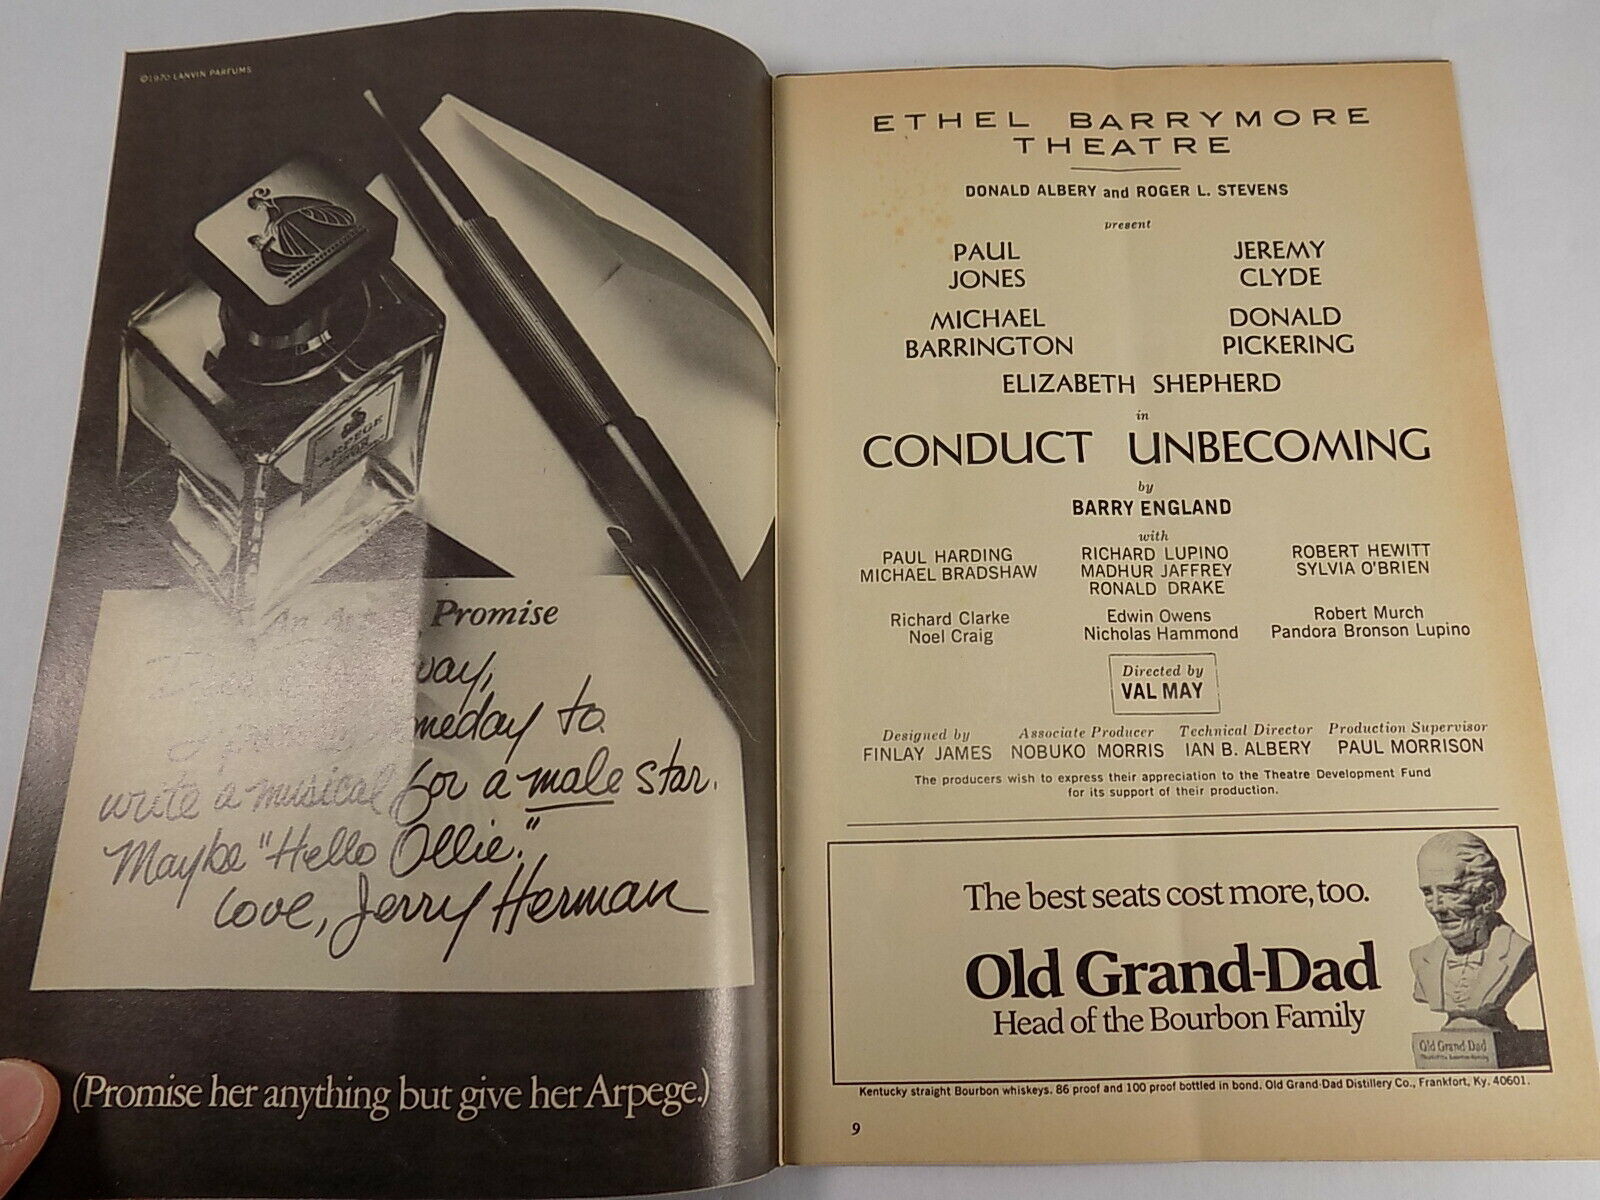 ©1970 LANVIN PARFUMS
ARPEGE
Promise
way,
someday to
write a musical for a male star.
Maybe "Hello Ollie."
Love, Jerry Herman
(Promise her anything but give her Arpege.)
ETHEL BARRYMORE
THEATRE
DONALD ALBERY and ROGER L. STEVENS
present
PAUL JONES
JEREMY CLYDE
MICHAEL BARRINGTON
DONALD PICKERING
ELIZABETH SHEPHERD
in
CONDUCT UNBECOMING
by
BARRY ENGLAND
with
PAUL HARDING RICHARD LUPINO ROBERT HEWITT
MICHAEL BRADSHAW MADHUR JAFFREY SYLVIA O'BRIEN
RONALD DRAKE
Richard Clarke Edwin Owens Robert Murch
Noel Craig Nicholas Hammond Pandora Bronson Lupino
Directed by
VAL MAY
Designed by Associate Producer Technical Director Production Supervisor
FINLAY JAMES NOBUKO MORRIS IAN B. ALBERY PAUL MORRISON
The producers wish to express their appreciation to the Theatre Development Fund
for its support of their production.
The best seats cost more, too.
Old Grand-Dad
Head of the Bourbon Family
Old Grand Dad
Kentucky straight Bourbon whiskeys. 86 proof and 100 proof bottled in bond. Old Grand-Dad Distillery Co., Frankfort, Ky. 40601.
9